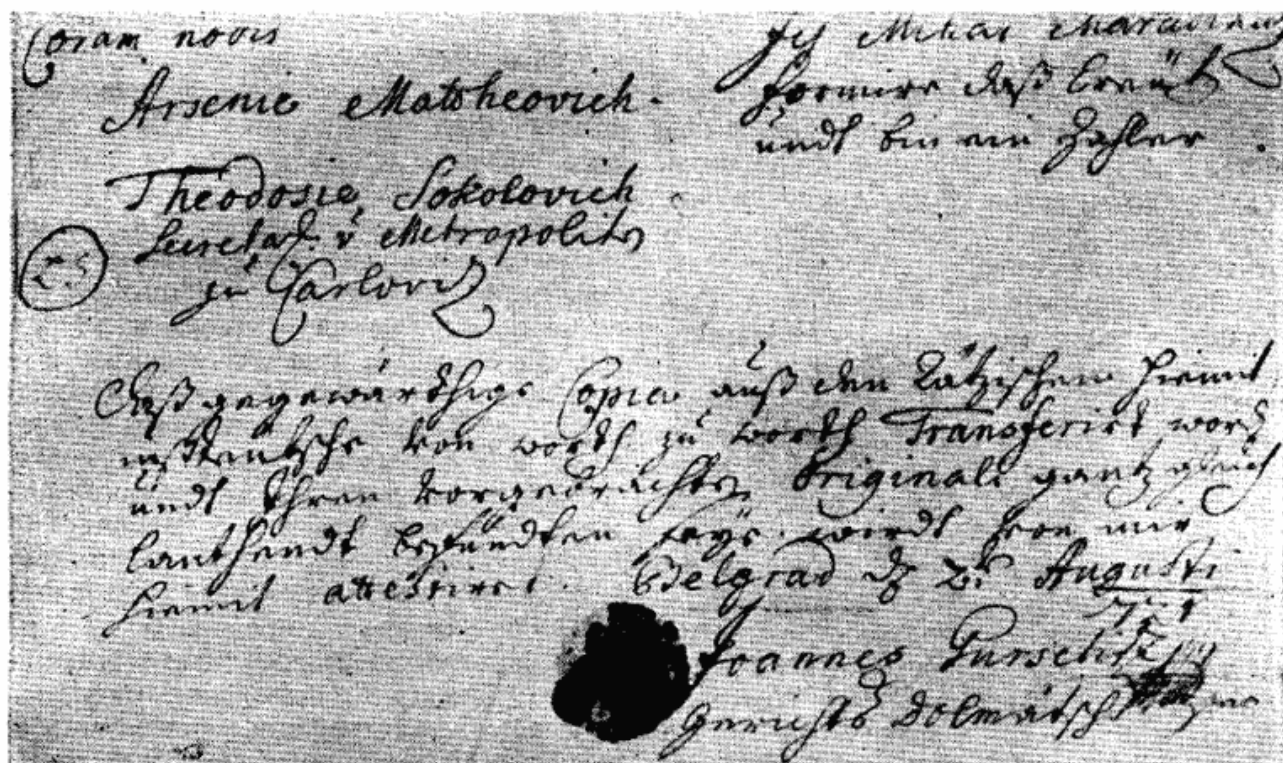 Coram nobis
Arsenie Matsheovich.
Theodosie Sokolovich.
Secretar. v Metropolit
zu Carlovitz
L.S.
Ich Mihai
formire daß Creütz
undt bin ein Zahler.
Daß gegewärthige Copia auß den Rätzischen hiemit
inß Teutsche von worth zu worth Transferirt word
undt Ihren vorgebrachten Original gantz gleich
lauthendt befundten seye. wirdt von mir
hiemit attestiret. Belgrad Augusti
Joannes
Gerichts Dolmätsch